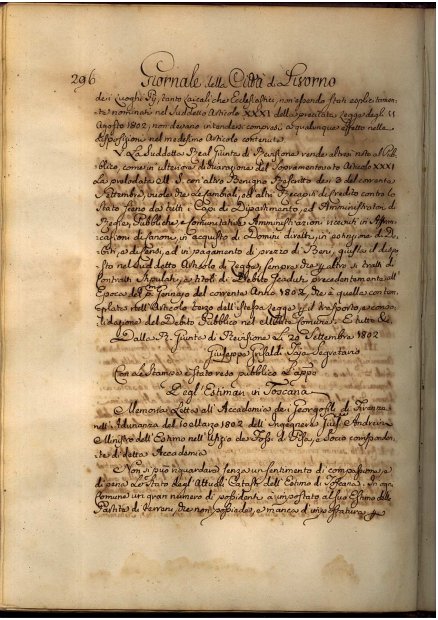 296 Giornale della Città di Livorno
dei Luoghi Pij, tanto Laicali, che Ecclesiastici, non essendo stati esplicitamen-
te nominati nel suddetto Articolo XXXI della precitata Legge degli 11
Agosto 1802, non devano intendersi compresi a qualunque effetto nella
disposizione nel medesimo Articolo contenuta.
La Suddetta Real Giunta di Revisione rende altresì noto al Pub-
blico, come in ulteriore dichiarazione del sopramentovato Articolo XXXI
La prelodata M. S. con altro Benigno Rescritto de' 3 del corrente
Settembre vuole che le Cambiali, ed altri Recapiti di Credito contro lo
Stato firmati da tutti i Capi di Dipartimento, ed Amministratori di
Regie, Pubbliche, e Comunitative Amministrazioni ricevuti in
di Saroni, in acquisto di Dominj diretti, in estinzione di
e di Censi, ed in pagamento di prezzo di Beni, giusta il dispo-
sto nel suddetto Articolo di Legge, sempre che però si tratti di
Contratti stipulati, e titoli di Debito creati precedentemente all'
Epoca del p.º Gennajo del corrente Anno 1802, che è quella contem-
plata dall'Articolo terzo dell'istessa Legge per il trasporto, e conso-
lidazione del Debito Pubblico nel Monte Comune. E tutto &c.
Dalla R. Giunta di Revisione Li 20 Settembre 1802
Giuseppe Segretario
Con le Stampe è stato reso pubblico l'appo
Degl'Estimi in Toscana
Memoria Letta all'Accademia dei Georgofili di Firenze
nell'Adunanza del 10 Marzo 1802 dell'Ingegnere Giuseppe Andreini
Ministro dell'Estimo nell'Ufizio de' Fossi di Pisa, e Socio corrisponden-
te di detta Accademia
Non si può riguardare senza un sentimento di compassione, e
di pena lo stato degli Attuali Catasti dell'Estimo di Toscana. In ogni
Comune un gran numero di possidenti à impostato al suo Estimo delle
Partite di terreni, che non possiede, e manca d'impostatura